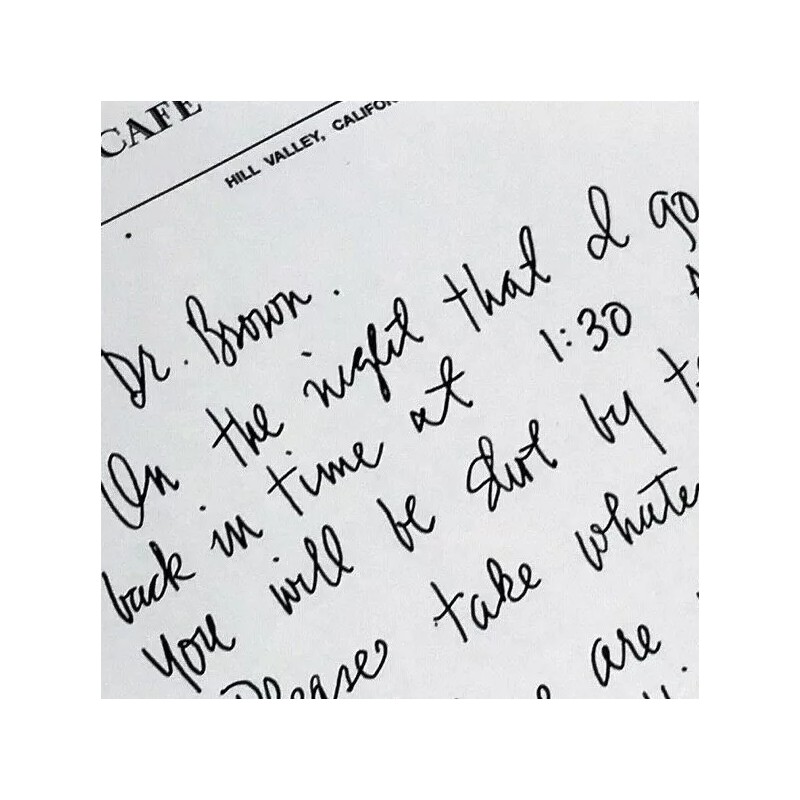 CAFE
HILL VALLEY, CALIFOR
Dr. Brown.
On the night that I go
back in time at 1:30
You will be shot by
Please take whate
are